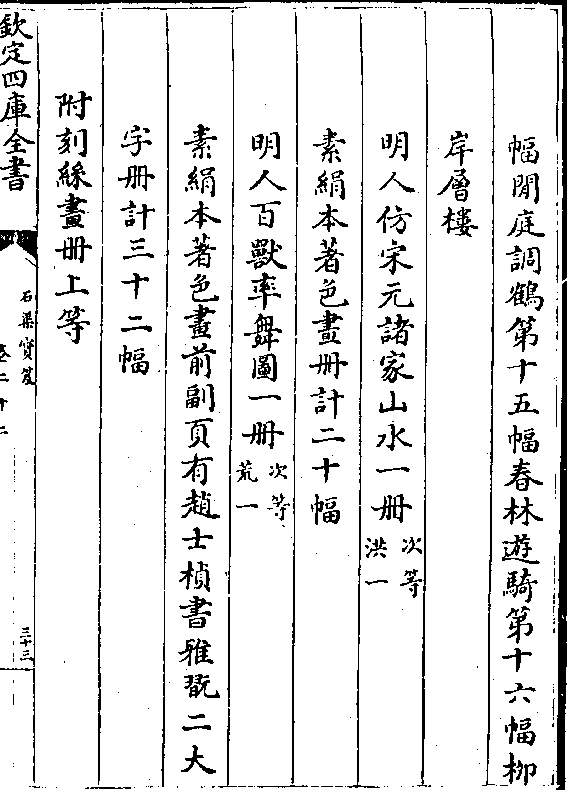 幅閒庭調鶴第十五幅春林遊騎第十六幅柳
岸層樓
明人仿宋元諸家山水一册次等洪一
素絹本著色畫册計二十幅
明人百獸率舞圖一册次等荒一
素絹本著色畫前副頁有趙士楨書雅翫二大
字册計三十二幅
附刻絲畫册上等
欽定四庫全書
石渠寳笈
卷二十二
三十三